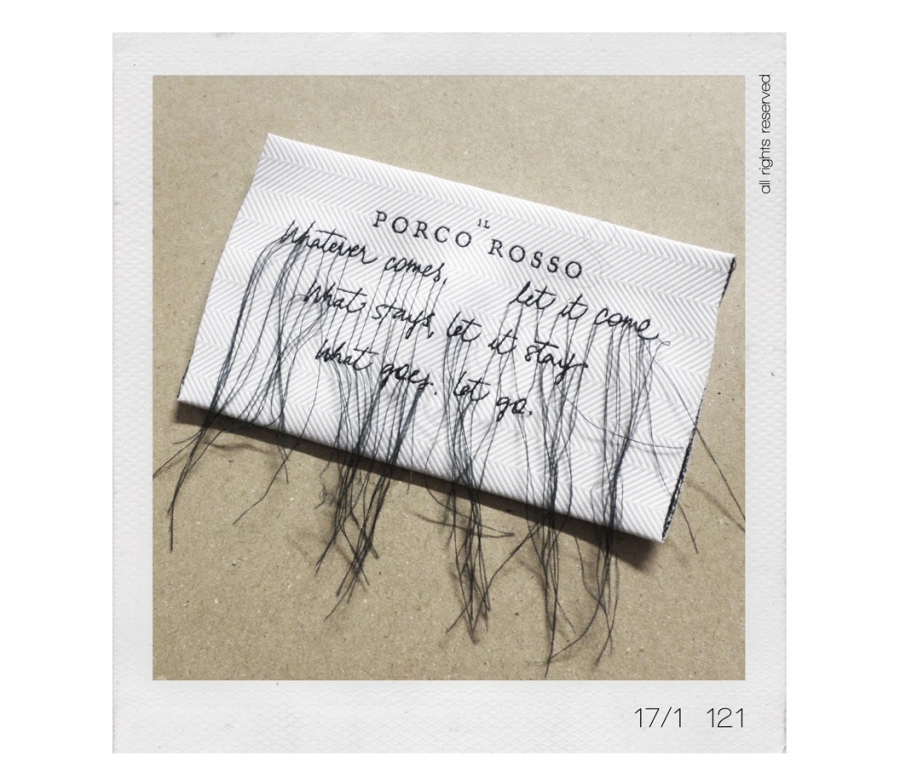 IL
PORCO ROSSO
Whatever comes, let it come
What stays, let it stay
What goes, let go.
all rights reserved
17/1 121